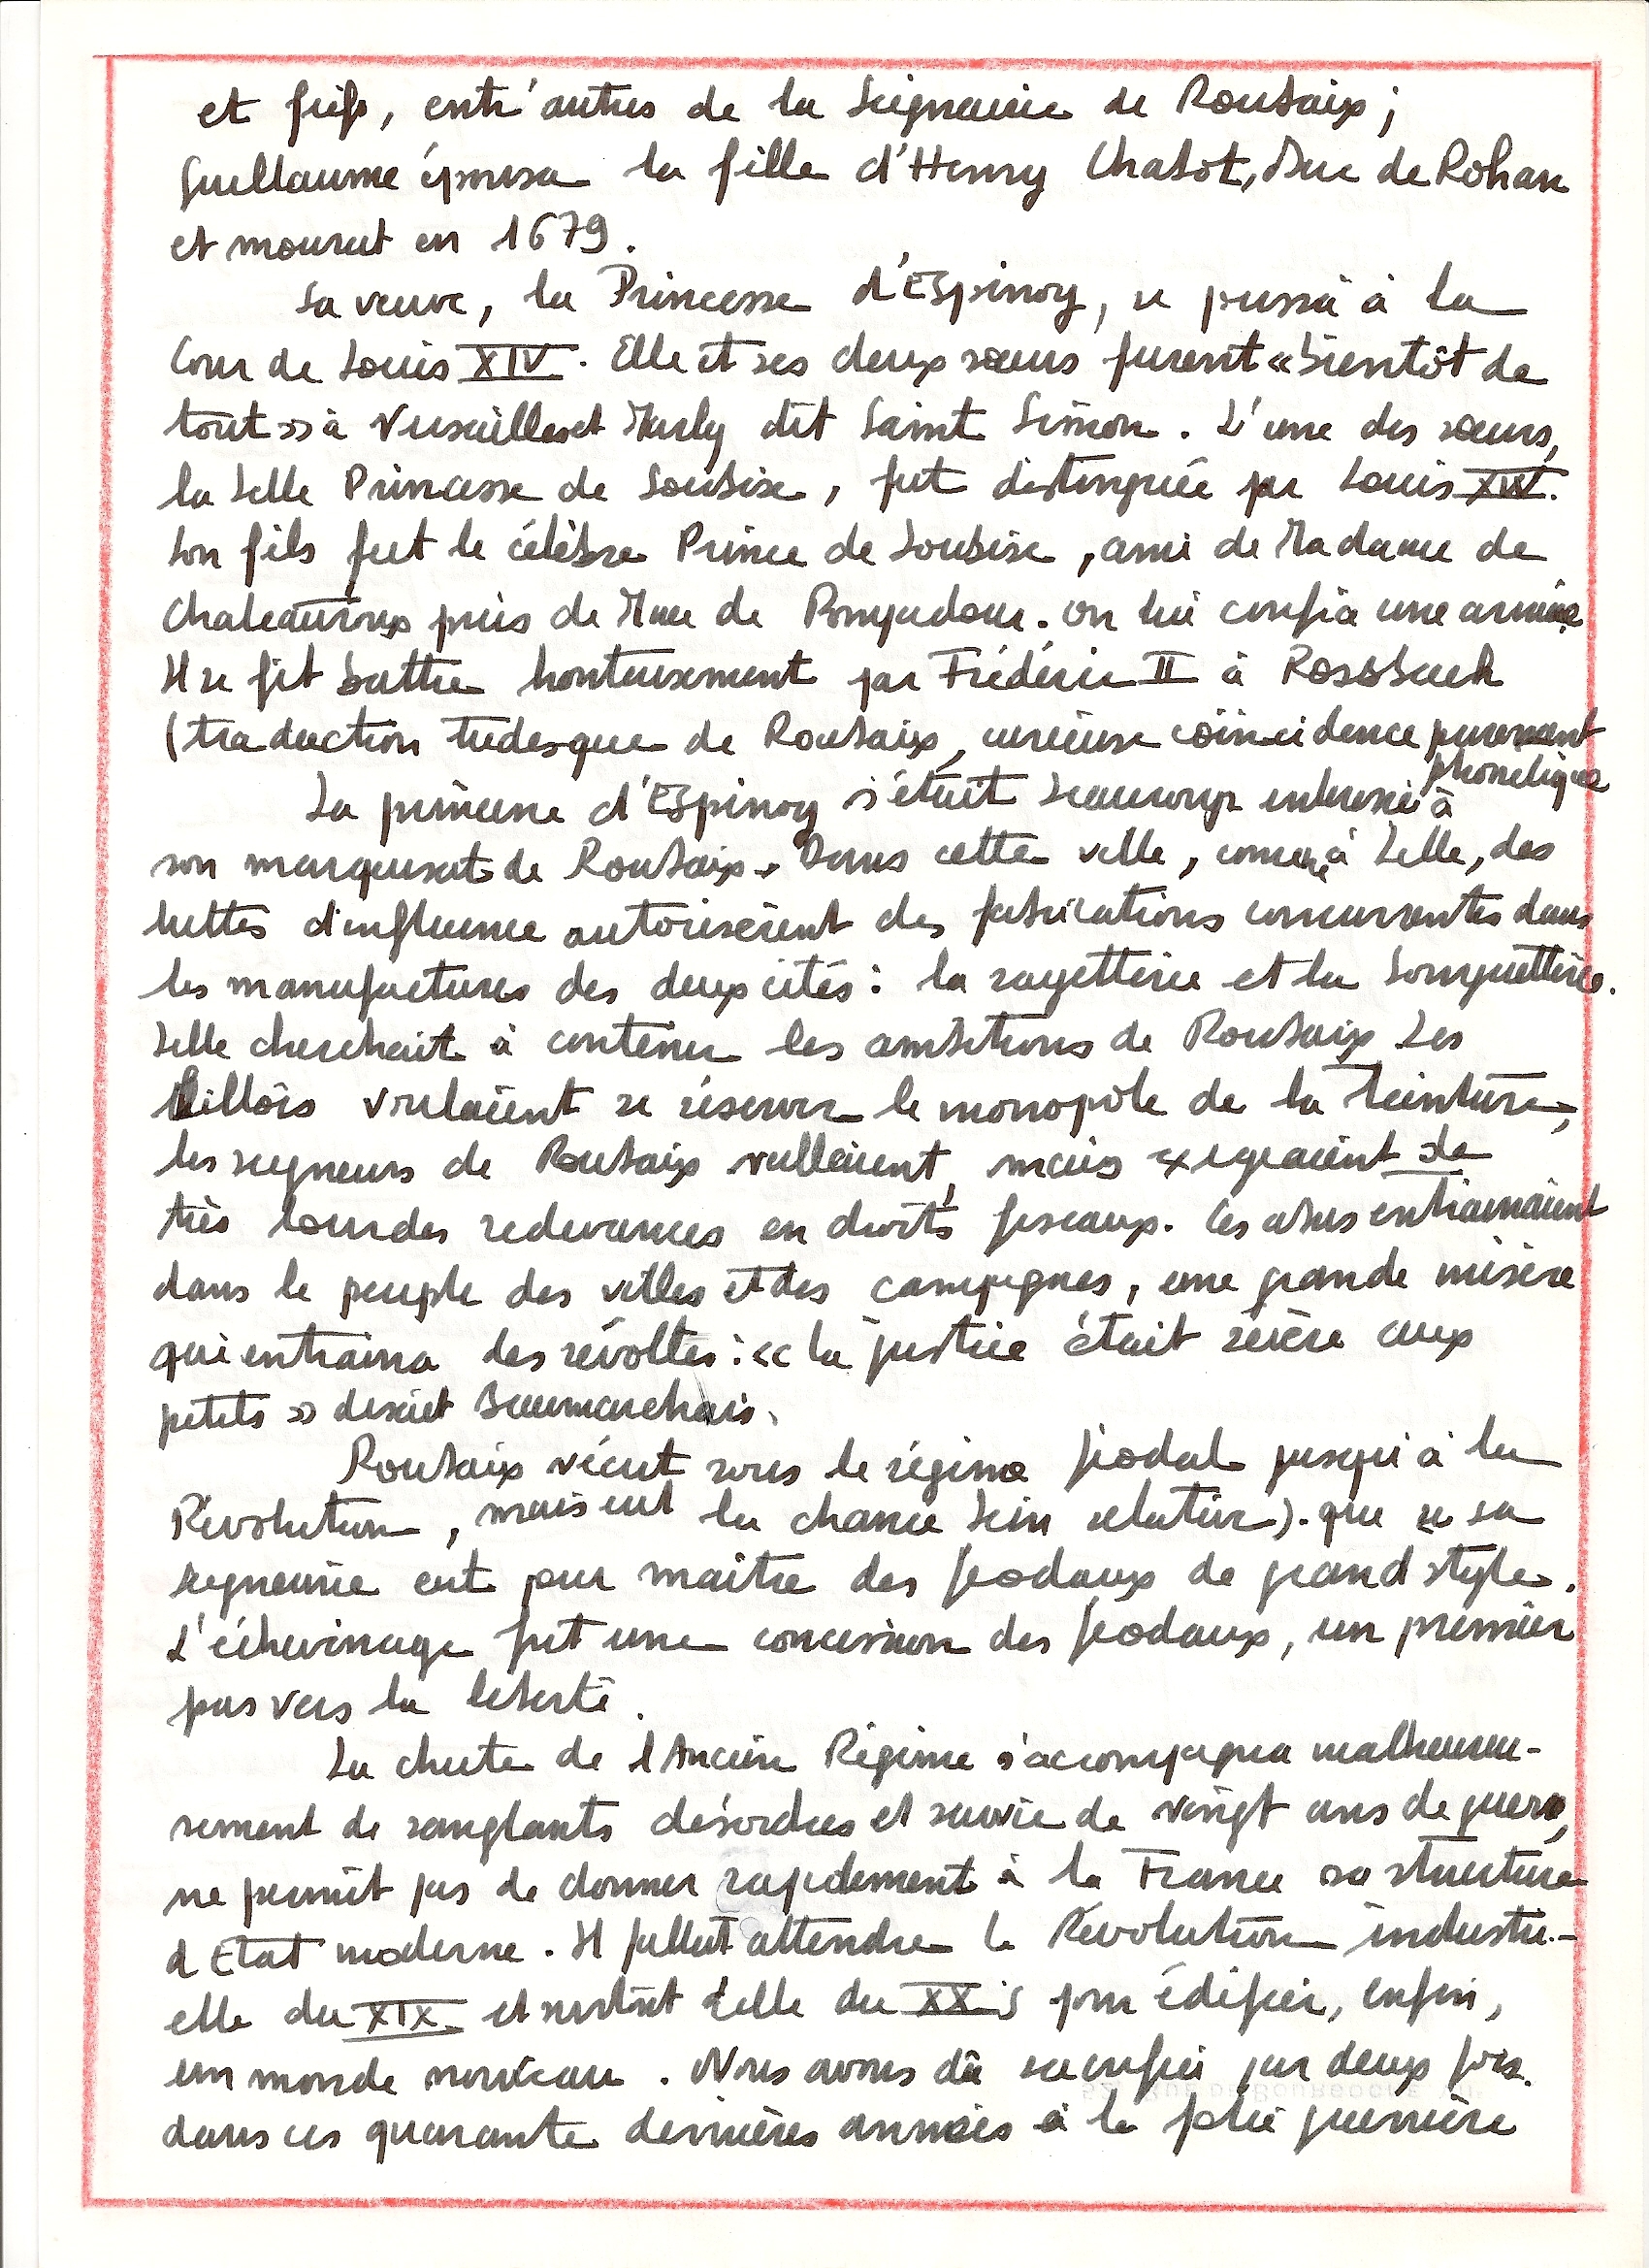 et fiefs, entr'autres de la Seigneurie de Roubaix ;
Guillaume épousa la fille d'Henry Chabot, Duc de Rohan
et mourut en 1679.
Sa veuve, la Princesse d'Espinoy, se poussa à la
Cour de Louis XIV. Elle et ses deux sœurs furent « bientôt de
tout » à Versailles et Marly dit Saint Simon. L'une des sœurs,
la belle Princesse de Soubise, fut distinguée par Louis XIV.
Son fils fut le célèbre Prince de Soubise, ami de Madame de
Chateauroux puis de Mme de Pompadour. on lui confia une armée
Il se fit battre honteusement par Frédéric II à Rossbach
(traduction tudesque de Roubaix, curieuse coïncidence purement
phonétique
La princesse d'Espinoy s'était beaucoup intéressée à
son marquisat de Roubaix. Dans cette ville, comme à Lille, des
luttes d'influence autorisèrent des fabrications concurrentes dans
les manufactures des deux cités : la sayetterie et la bourgetterie.
Lille cherchait à contenir les ambitions de Roubaix Les
Lillois voulaient se réserver le monopole de la teinture,
les seigneurs de Roubaix veillaient, mais exigeaient de
très lourdes redevances en droits fiscaux. Ces abus entrainaient
dans le peuple des villes et des campagnes, une grande misère
qui entraina des révoltes : « la justice était sévère aux
petits » disait Beaumarchais.
Roubaix vécut sous le régime féodal jusqu'à la
Révolution, mais eut la chance bien relative). que sa
seigneurie eut pour maître des féodaux de grand style.
L'échevinage fut une concession des féodaux, un premier
pas vers la liberté.
La chute de l'Ancien Régime s'accompagna malheureu-
sement de sanglants désordres et suivie de vingt ans de guerre,
ne permit pas de donner rapidement à la France sa structure
d Etat moderne. Il fallut attendre la Révolution industri-
elle du XIX et surtout celle du XX s pour édifier, enfin,
un monde nouveau. Nous avons dû sacrifier par deux fois
dans ces quarante dernières années à la folie guerrière